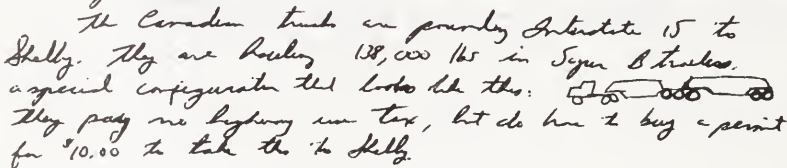 The Canadian trucks are pounding Interstate 15 to
Shelby. They are hauling 138,000 lbs in Super B trailers.
a special configuration that looks like this:
They pay no highway use tax, but do have to buy a permit
for $10.00 to take this to Shelby.